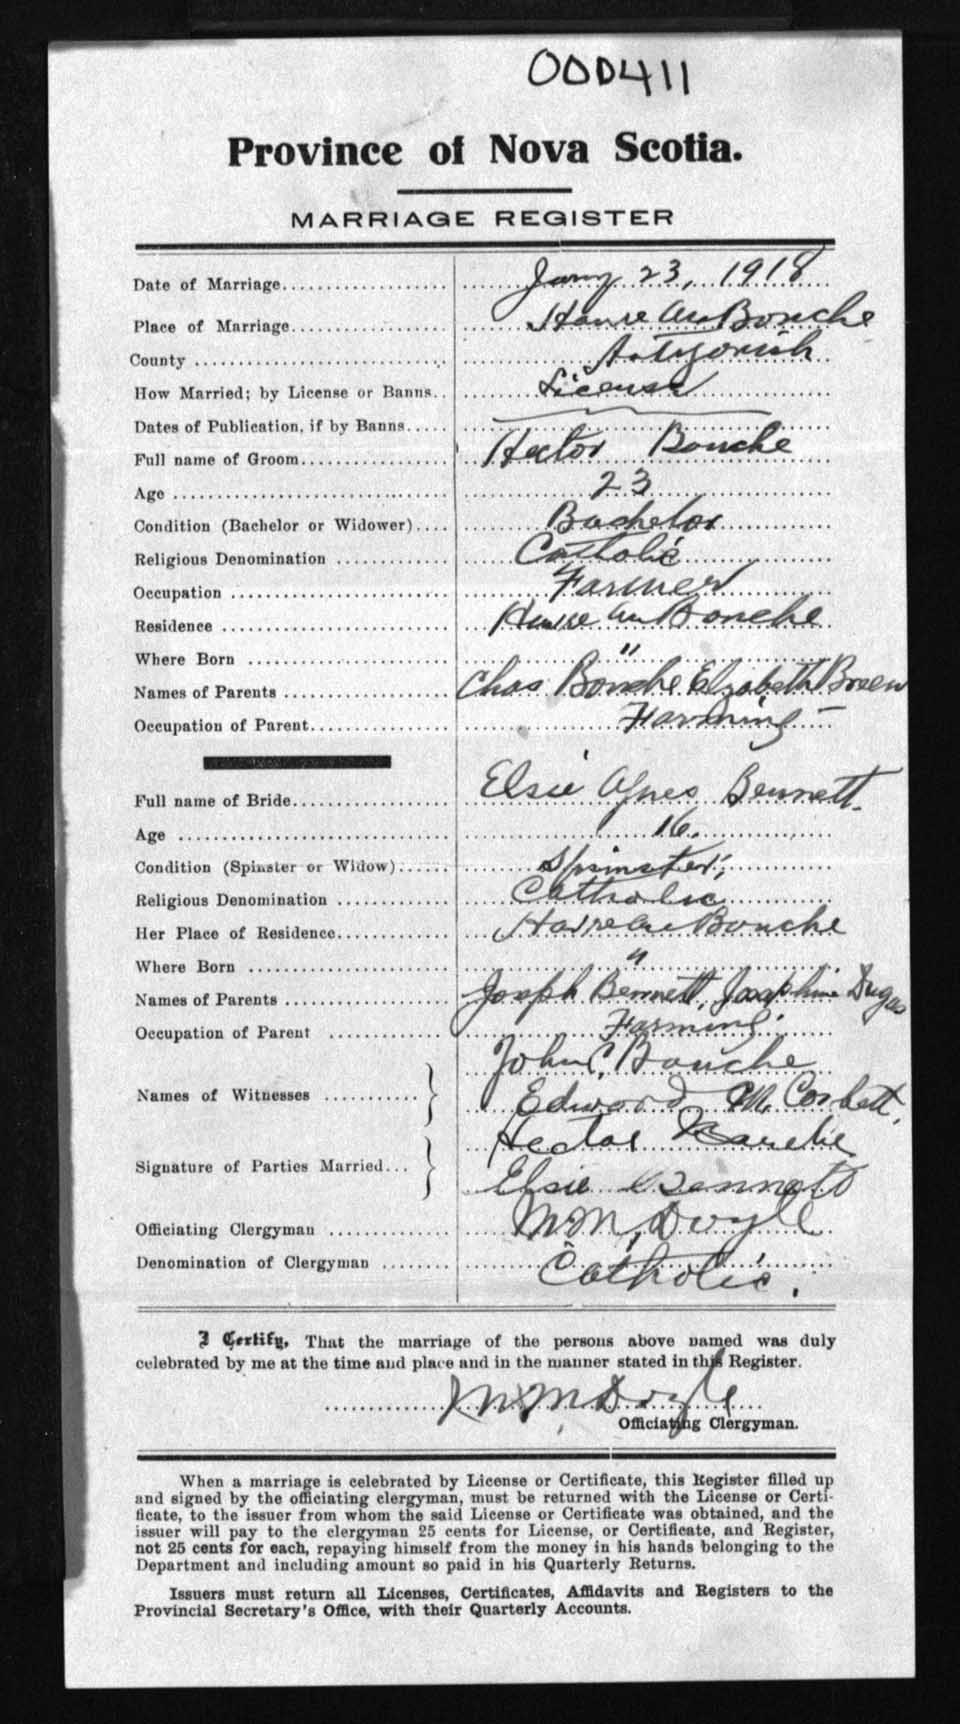 000411
Province of Nova Scotia.
MARRIAGE REGISTER
Date of Marriage Jany 23, 1918
Place of Marriage Havre Au Bouche
County Antigonish
How Married; by License or Banns License
Dates of Publication, if by Banns
Full name of Groom Hector Bouche
Age 23
Condition (Bachelor or Widower) Bachelor
Religious Denomination Catholic
Occupation Farmer
Residence Havre au Bouche
Where Born "
Names of Parents Chas Bouche Elzabeth Breen
Occupation of Parent Farming
Full name of Bride Elsie Agnes Bennett.
Age 16.
Condition (Spinster or Widow) Spinster,
Religious Denomination Catholic
Her Place of Residence Havre Au Bouche
Where Born "
Names of Parents Joseph Bennett, Josephine Dugas
Occupation of Parent Farming
Names of Witnesses John C. Bouche
Edward M. Corbett.
Signature of Parties Married Hector Bouche
Elsie Bennett
Officiating Clergyman M. M. Doyle
Denomination of Clergyman Catholic.
I Certify, That the marriage of the persons above named was duly
celebrated by me at the time and place and in the manner stated in this Register.
M. M. Doyle
Officiating Clergyman.
When a marriage is celebrated by License or Certificate, this Register filled up
and signed by the officiating clergyman, must be returned with the License or Certi-
ficate, to the issuer from whom the said License or Certificate was obtained, and the
issuer will pay to the clergyman 25 cents for License, or Certificate, and Register,
not 25 cents for each, repaying himself from the money in his hands belonging to the
Department and including amount so paid in his Quarterly Returns.
Issuers must return all Licenses, Certificates, Affidavits and Registers to the
Provincial Secretary's Office, with their Quarterly Accounts.